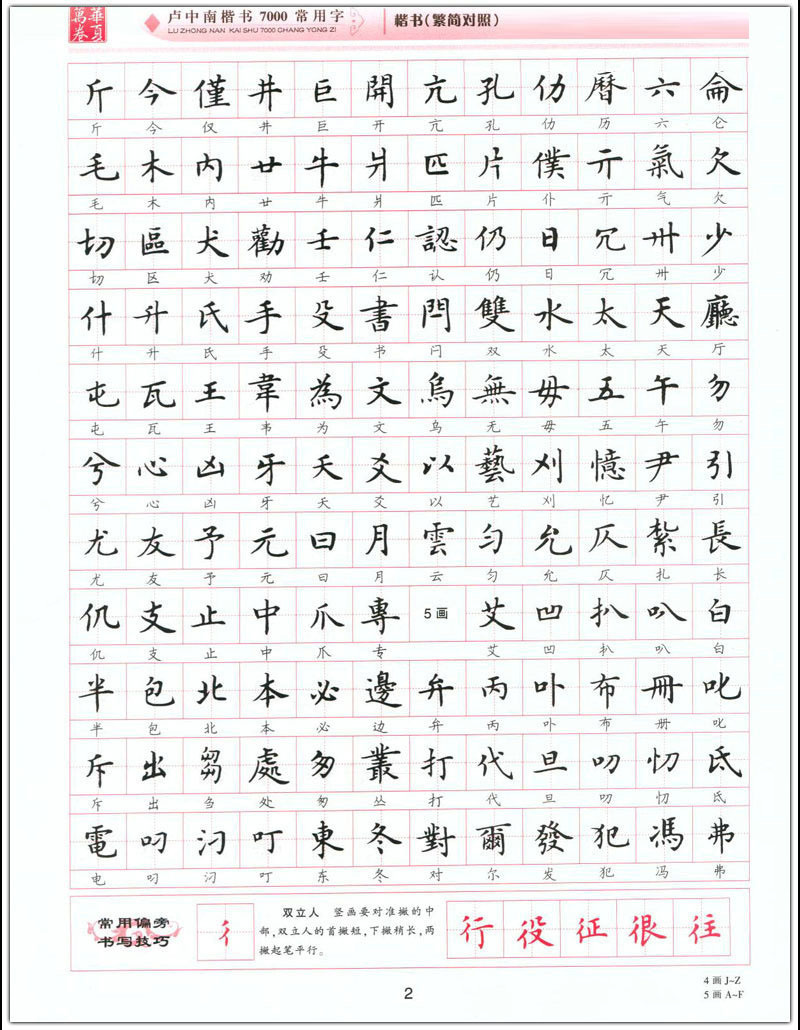 華夏萬卷
卢中南楷书 7000 常用字
LU ZHONG NAN KAI SHU 7000 CHANG YONG ZI
楷书(繁简对照)
斤 今 僅 井 巨 開 亢 孔 仂 曆 六 侖
斤 今 仅 井 巨 开 亢 孔 仂 历 六 仑
毛 木 内 廿 牛 爿 匹 片 僕 亓 氣 欠
毛 木 内 廿 牛 爿 匹 片 仆 亓 气 欠
切 區 犬 勸 壬 仁 認 仍 日 冗 卅 少
切 区 犬 劝 壬 仁 认 仍 日 冗 卅 少
什 升 氏 手 殳 書 閂 雙 水 太 天 廳
什 升 氏 手 殳 书 闩 双 水 太 天 厅
屯 瓦 王 韋 為 文 烏 無 毋 五 午 勿
屯 瓦 王 韦 为 文 乌 无 毋 五 午 勿
兮 心 凶 牙 夭 爻 以 藝 刈 憶 尹 引
兮 心 凶 牙 夭 爻 以 艺 刈 忆 尹 引
尤 友 予 元 曰 月 雲 勻 允 仄 紮 長
尤 友 予 元 曰 月 云 匀 允 仄 扎 长
仉 支 止 中 爪 專 5画 艾 凹 扒 叭 白
仉 支 止 中 爪 专 艾 凹 扒 叭 白
半 包 北 本 必 邊 弁 丙 卟 布 冊 叱
半 包 北 本 必 边 弁 丙 卟 布 册 叱
斥 出 芻 處 匆 叢 打 代 旦 叨 忉 氐
斥 出 刍 处 匆 丛 打 代 旦 叨 忉 氐
電 叼 氿 叮 東 冬 對 爾 發 犯 馮 弗
电 叼 氿 叮 东 冬 对 尔 发 犯 冯 弗
常用偏旁
书写技巧
彳
双立人 竖画要对准撇的中
部,双立人的首撇短,下撇稍长,两
撇起笔平行。
行 役 征 很 往
2
4画 J~Z
5画 A~F